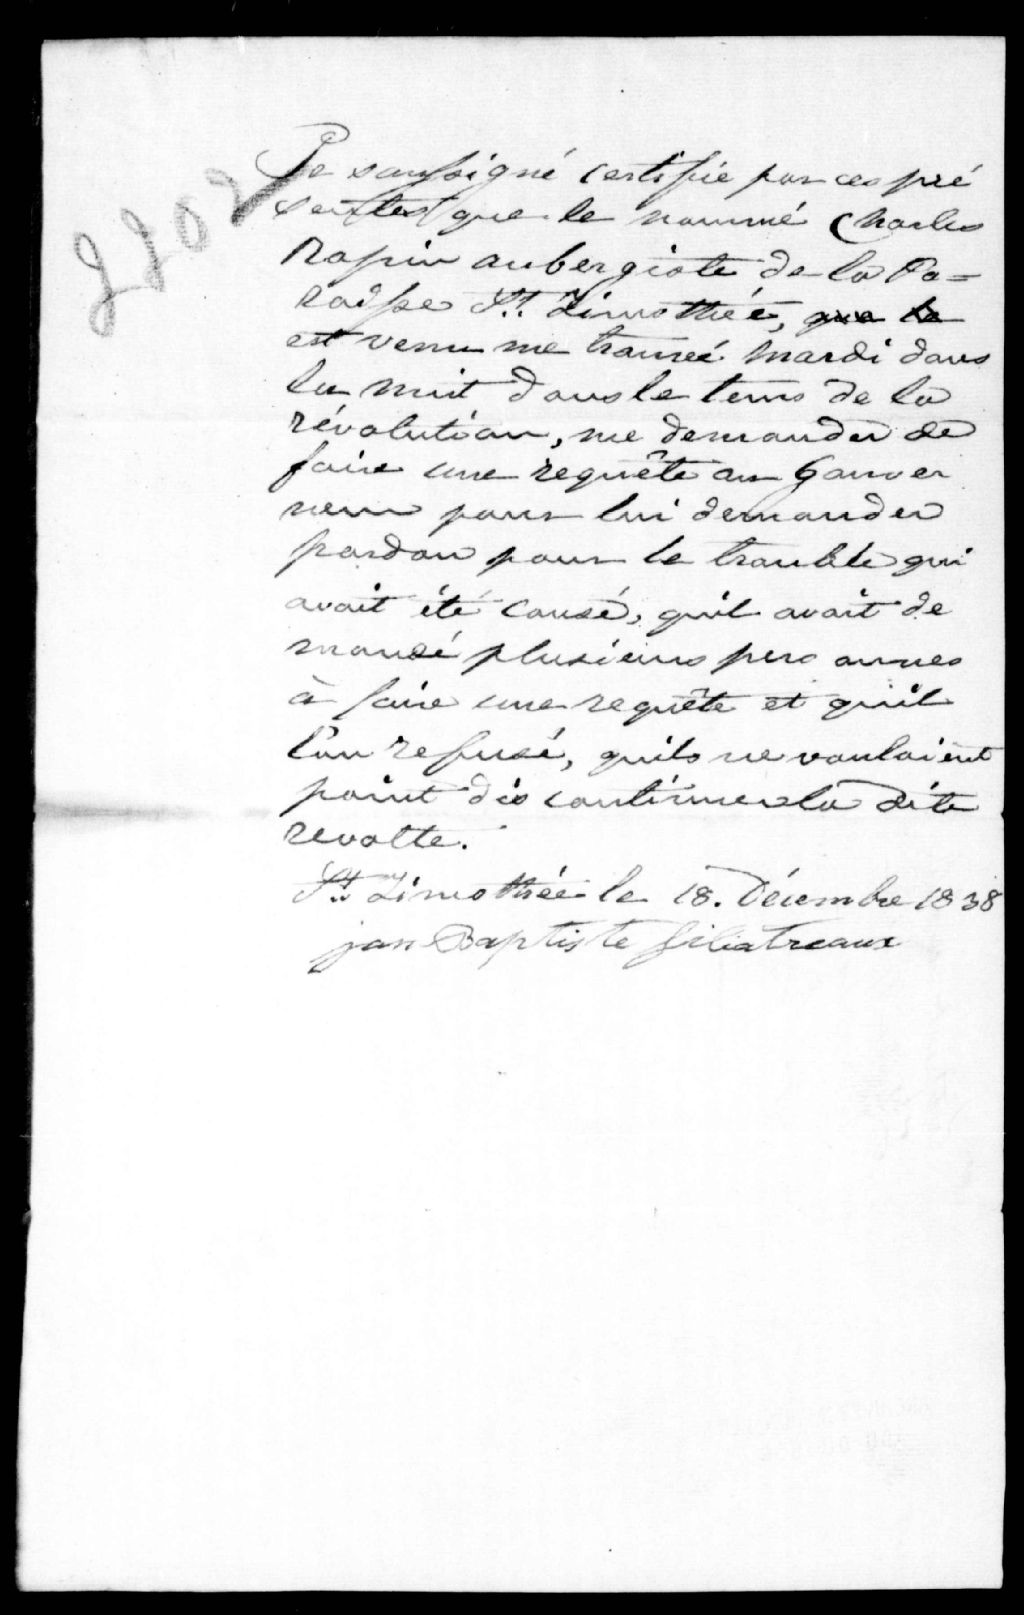 2202
Je soussigné certifie par ces pré
sentes que le nommé Charles
Rapin aubergiste de la Pa=
roisse St. Timothée, que le
est venu me trouvé mardi dans
la nuit dans le tems de la
révolution, me demander de
faire une requête au Gouver
neur pour lui demander
pardon pour le trouble qui
avait été causé, qu'il avait de
mandé plusieurs personnes
à faire une requête et qu'il
l'on refusé, quils ne voulaient
point dis continuer la dite
revolte.
St. Timothée le 18. Décembre 1838
jan Baptiste filiatreaux